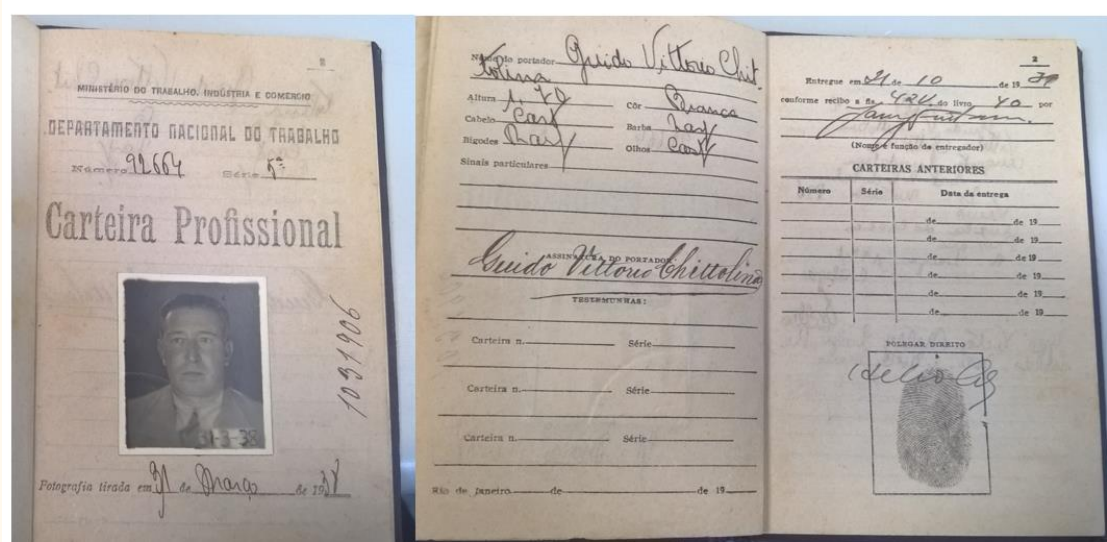 2
MINISTÉRIO DO TRABALHO, INDÚSTRIA E COMERCIO
DEPARTAMENTO NACIONAL DO TRABALHO
Número 92664 Série 5ª
Carteira Profissional
1031906
31-3-38
Fotografia tirada em 31 de Março de 1938
Nome do portador Guido Vittorio Chit
tolina
Altura 1,70 Côr Branca
Cabelo Cast Barba Rasp
Bigodes Rasp Olhos Cast
Sinais particulares
ASSINATURA DO PORTADOR
Guido Vittorio Chittolina
TESTEMUNHAS:
Carteira n. Série
Carteira n. Série
Carteira n. Série
Rio de Janeiro de de 19
2
Entregue em 21 de 10 de 19 39
conforme recibo a fls. 424 do livro 40 por
(Nome e função do entregador)
CARTEIRAS ANTERIORES
Número Série Data da entrega
de de 19
de de 19
de de 19
de de 19
de de 19
de de 19
POLEGAR DIREITO